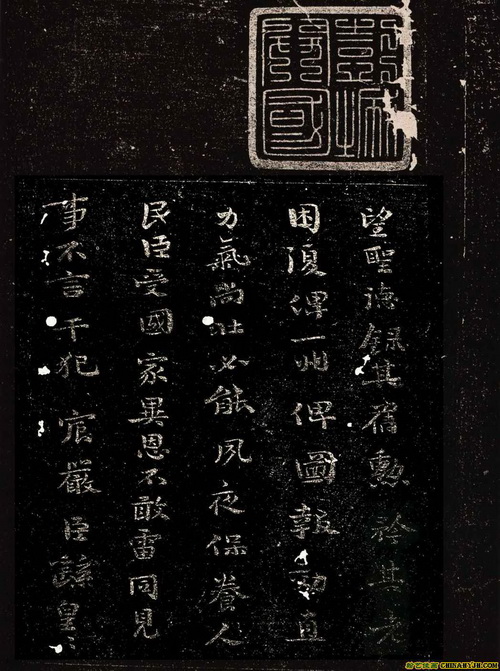 彭城
開國
望聖德錄其舊勳矜其老
困復俾一州俾圖報効直
力氣尚壯必能夙夜保養人
民臣受國家異恩不敢雷同見
事不言干犯宸嚴臣繇皇〻